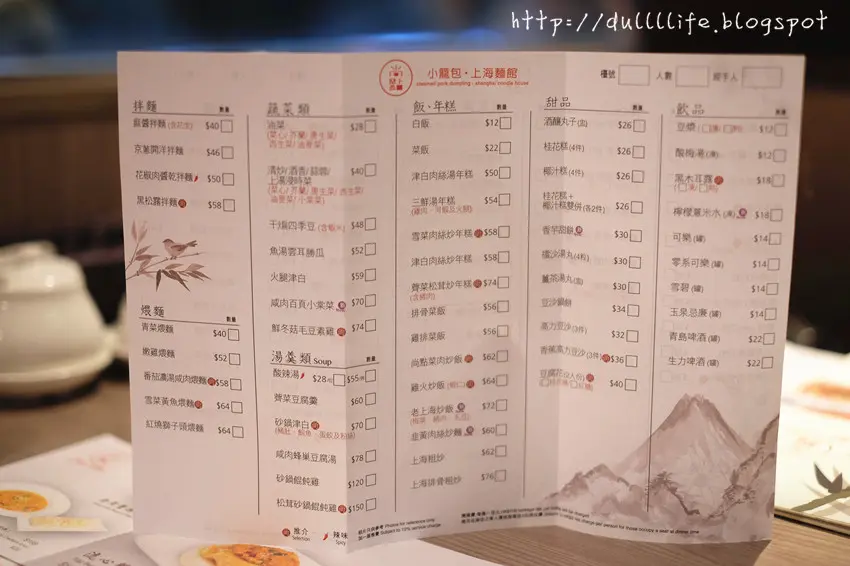 http://dullllife.blogspot
小籠包·上海麵館
steamed pork dumpling · shanghai noodle house
檯號 人數 經手人
拌麵 數量
麻醬拌麵 $40
京蔥開洋拌麵 $46
花椒肉醬乾拌麵 $50
黑松露拌麵 $58
煨麵 數量
青菜煨麵 $40
嫩雞煨麵 $52
番茄濃湯咸肉煨麵 $58
雪菜黃魚煨麵 $64
紅燒獅子頭煨麵 $64
蔬菜類 數量
油菜 $28
$40
上湯浸時菜
干煸四季豆 $48
魚湯雲耳勝瓜 $52
火腿津白 $59
咸肉百頁小棠菜 $70
鮮冬菇毛豆素雞 $74
湯羹類 Soup 數量
酸辣湯 $28 $55
薺菜豆腐羹 $60
砂鍋津白 $70
咸肉蜂巢豆腐湯 $78
砂鍋餛飩雞 $120
松茸砂鍋餛飩雞 $150
飯、年糕 數量
白飯 $12
菜飯 $22
津白肉絲湯年糕 $50
三鮮湯年糕 $54
雪菜肉絲炒年糕 $58
津白肉絲炒年糕 $58
薺菜松茸炒年糕 $74
(含豬肉)
排骨菜飯 $56
雞排菜飯 $56
尚點菜肉炒飯 $62
雞火炒飯 $64
老上海炒飯 $72
韭黃肉絲炒麵 $60
上海粗炒 $62
上海排骨粗炒 $76
甜品 數量
酒釀丸子 $26
桂花糕 (4件) $26
椰汁糕 (4件) $26
桂花糕+
椰汁糕雙併 (各2件) $26
香芋甜餅 $30
擂沙湯丸 (4粒) $30
薑茶湯丸 $30
豆沙鍋餅 $34
高力豆沙 (3件) $32
香蕉高力豆沙 (3件) $36
豆腐花 $40
飲品 數量
豆漿 $12
酸梅湯 (凍) $12
黑木耳露 $18
檸檬薏米水 (凍) $18
可樂 (罐) $14
零系可樂 (罐) $14
雪碧 (罐) $14
玉泉忌廉 (罐) $14
青島啤酒 (罐) $22
生力啤酒 (罐) $22
推介
Selection
辣味
Spicy
Photos for reference only
Subject to 10% service charge